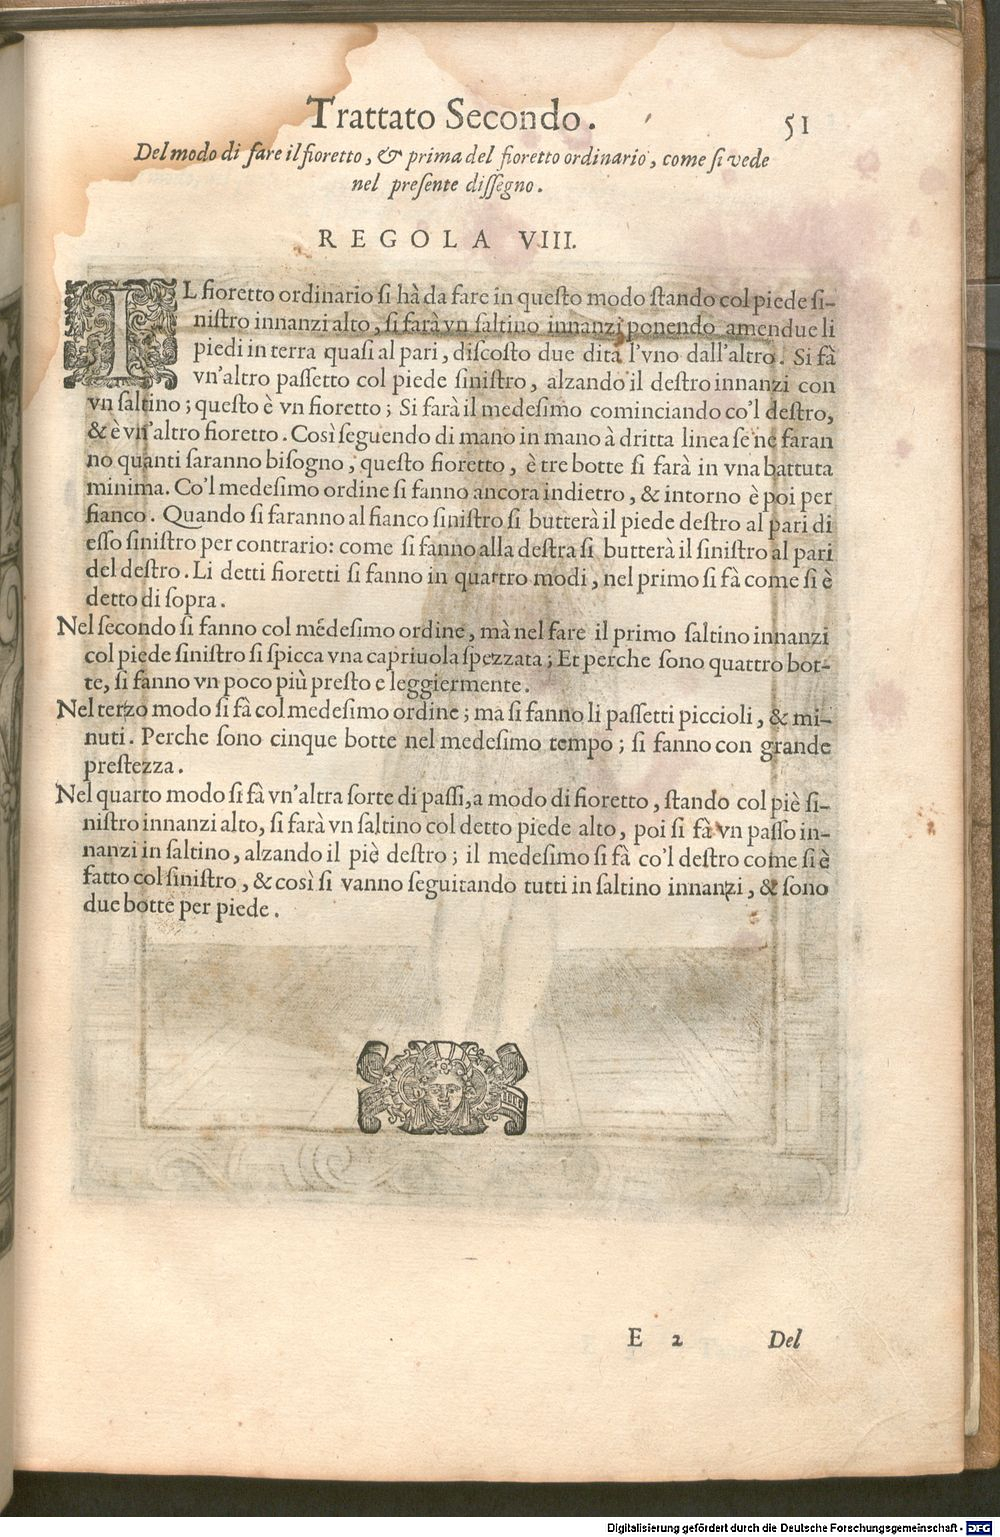 Trattato Secondo. 51
Del modo di fare il fioretto, & prima del fioretto ordinario, come ſi vede
nel preſente diſſegno.
REGOLA VIII.
IL fioretto ordinario ſi hà da fare in queſto modo ſtando col piede ſi-
niſtro innanzi alto, ſi farà vn ſaltino innanzi ponendo amendue li
piedi in terra quaſi al pari, diſcoſto due dita l'vno dall'altro. Si fà
vn'altro paſſetto col piede ſiniſtro, alzando il deſtro innanzi con
vn ſaltino; queſto è vn fioretto; Si farà il medeſimo cominciando co'l deſtro,
& è vn'altro fioretto. Così ſeguendo di mano in mano à dritta linea ſe ne faran
no quanti ſaranno biſogno, queſto fioretto, è tre botte ſi farà in vna battuta
minima. Co'l medeſimo ordine ſi fanno ancora indietro, & intorno è poi per
fianco. Quando ſi faranno al fianco ſiniſtro ſi butterà il piede deſtro al pari di
eſſo ſiniſtro per contrario: come ſi fanno alla deſtra ſi butterà il ſiniſtro al pari
del deſtro. Li detti fioretti ſi fanno in quattro modi, nel primo ſi fà come ſi è
detto di ſopra.
Nel ſecondo ſi fanno col médeſimo ordine, mà nel fare il primo ſaltino innanzi
col piede ſiniſtro ſi ſpicca vna capriuola ſpezzata; Et perche ſono quattro bot-
te, ſi fanno vn poco più preſto e leggiermente.
Nel terzo modo ſi fà col medeſimo ordine; ma ſi fanno li paſſetti piccioli, & mi-
nuti. Perche ſono cinque botte nel medeſimo tempo; ſi fanno con grande
preſtezza.
Nel quarto modo ſi fà vn'altra ſorte di paſſi, a modo di fioretto, ſtando col piè ſi-
niſtro innanzi alto, ſi farà vn ſaltino col detto piede alto, poi ſi fà vn paſſo in-
nanzi in ſaltino, alzando il piè deſtro; il medeſimo ſi fà co'l deſtro come ſi è
fatto col ſiniſtro, & così ſi vanno ſeguitando tutti in ſaltino innanzi, & ſono
due botte per piede.
E 2 Del
Digitalisierung gefördert durch die Deutsche Forschungsgemeinschaft - DFG